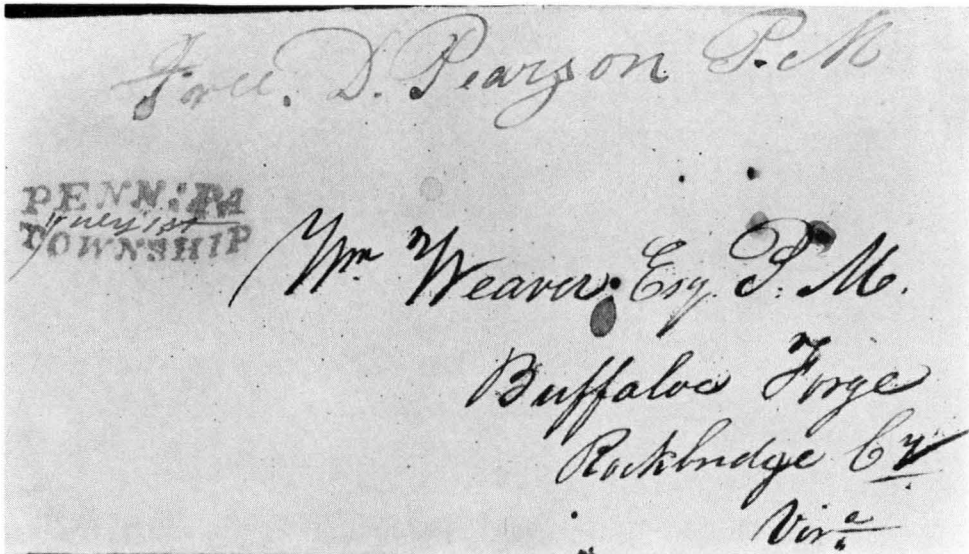 Free. D. Pearson P.M
PENN: PA
TOWNSHIP
Wm Weaver Esq. P. M.
Buffaloe Forge
Rockbridge Cy
Vira